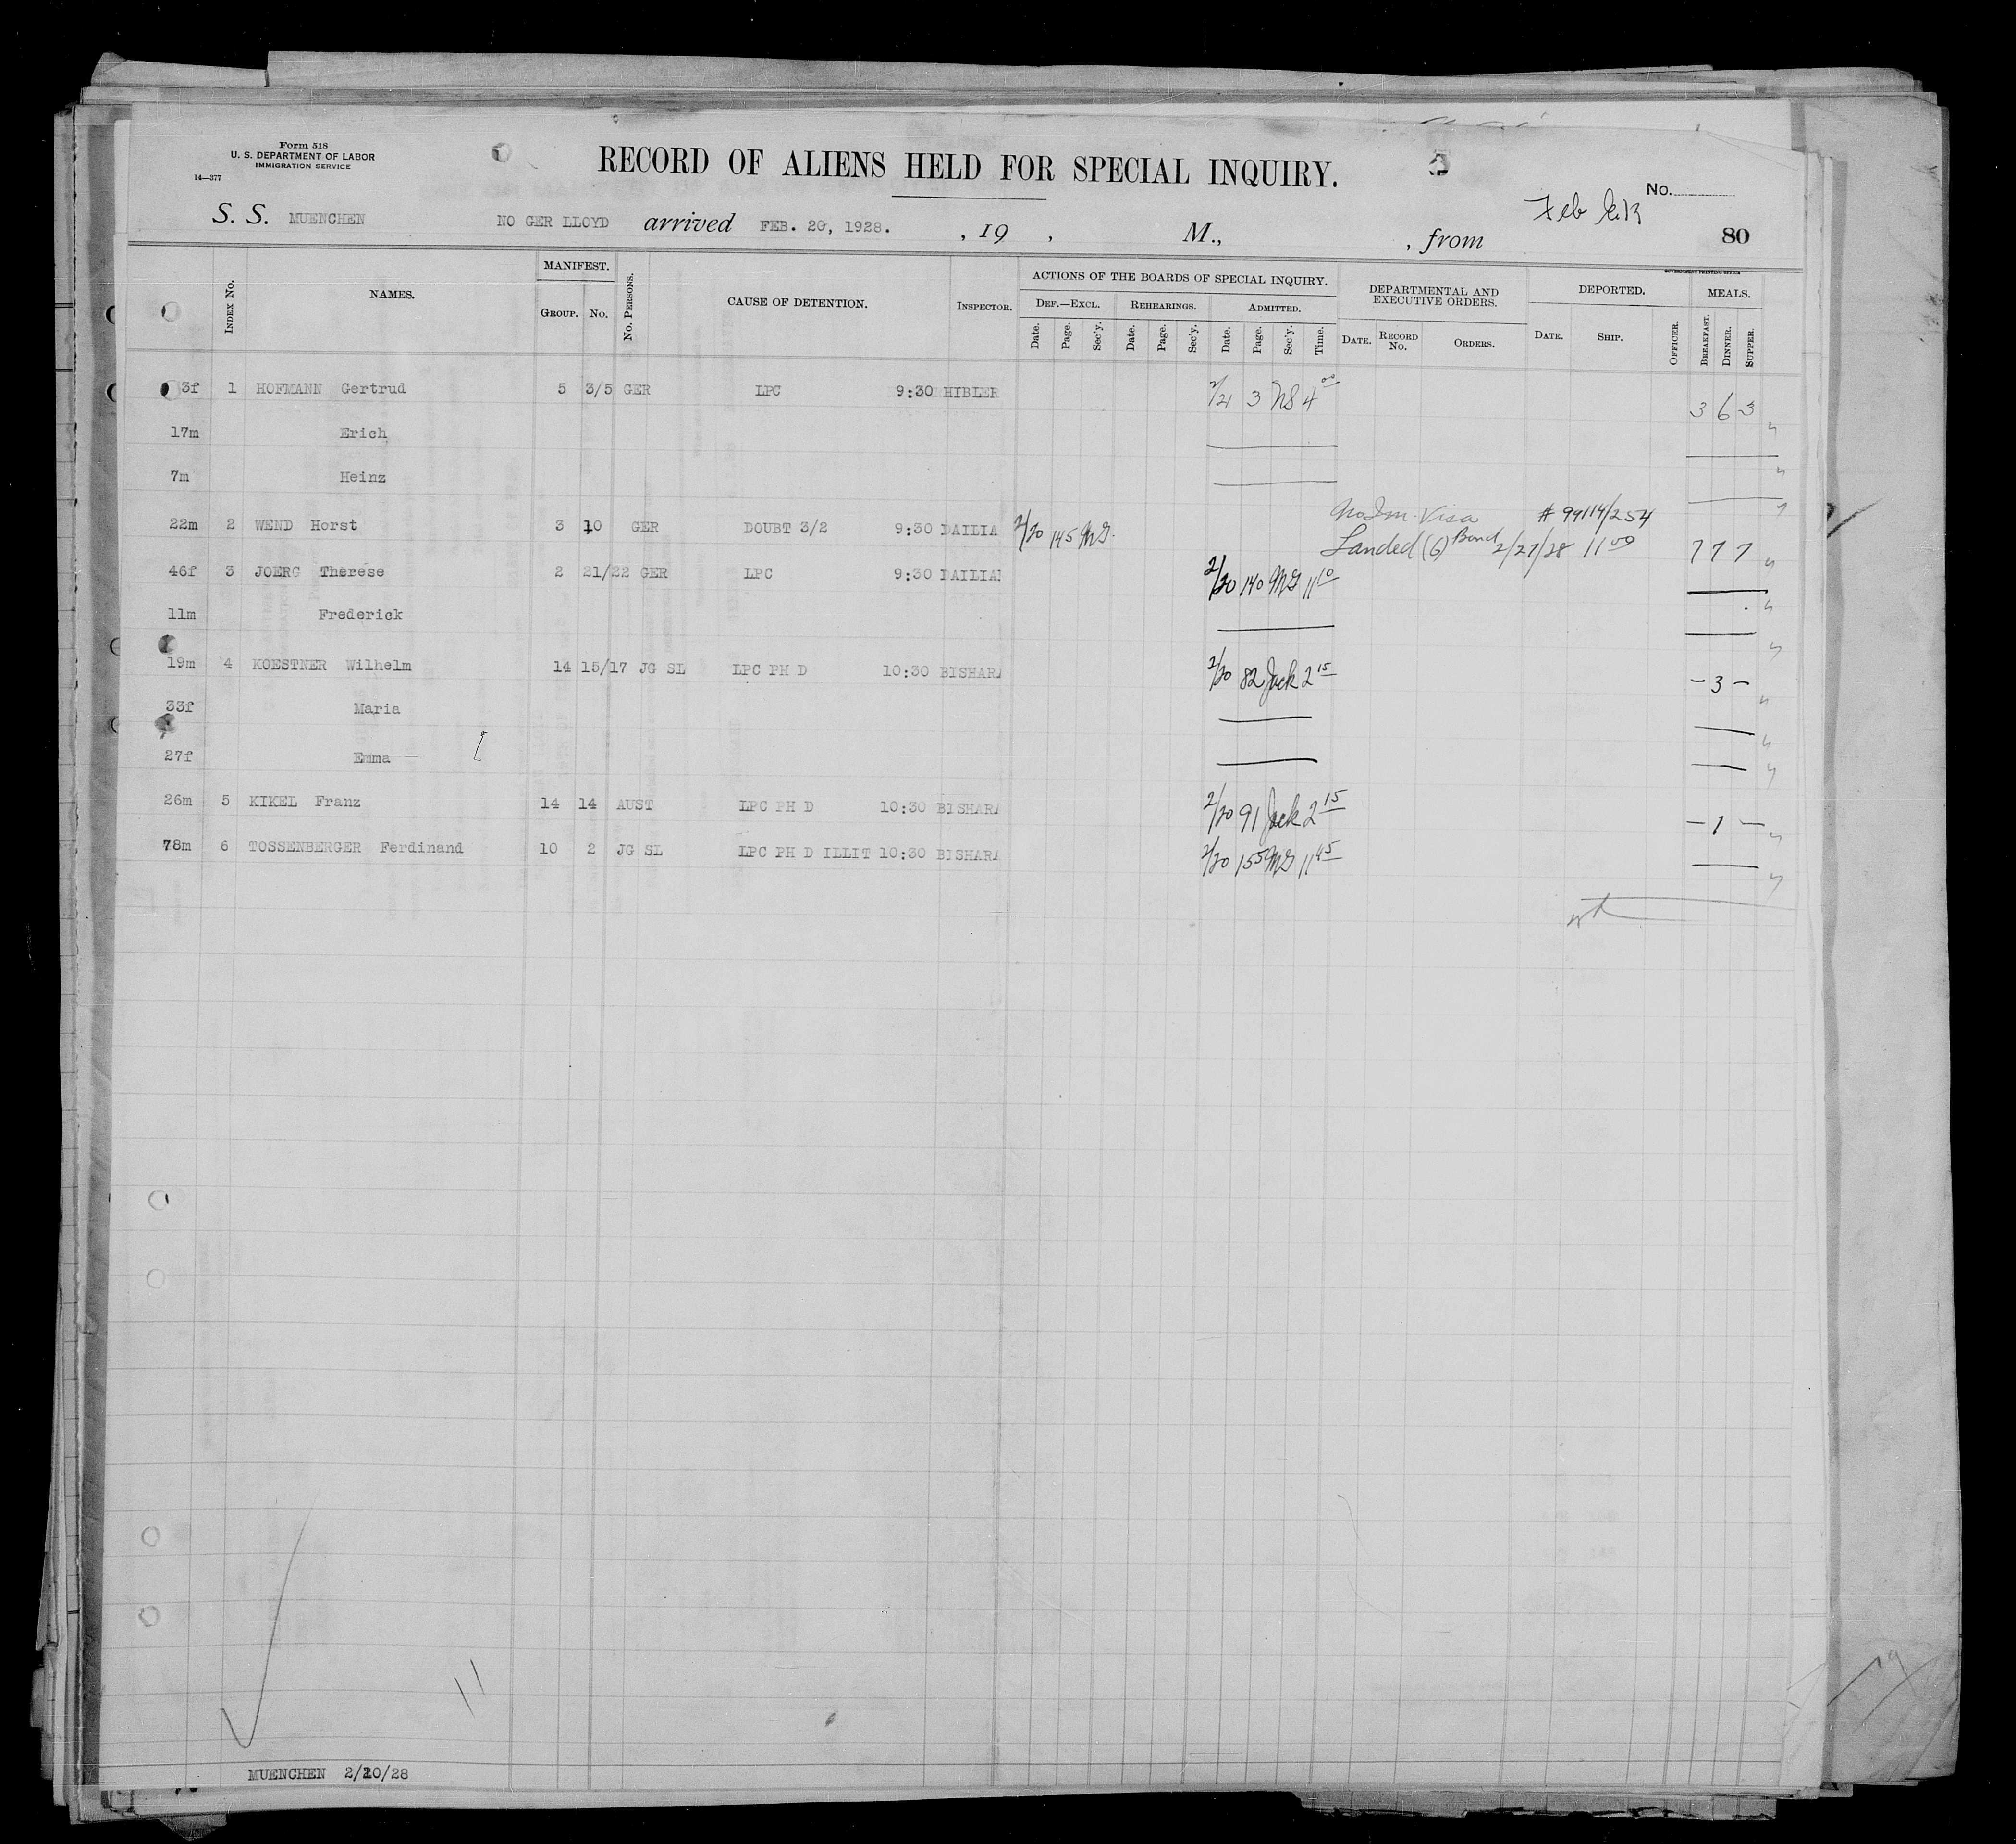 Form 518
U. S. DEPARTMENT OF LABOR
IMMIGRATION SERVICE
14—377
RECORD OF ALIENS HELD FOR SPECIAL INQUIRY.
No.
S. S. MUENCHEN NO GER LLOYD arrived FEB. 20, 1928. , 19 , M., , from
Feb
80
GOVERNMENT PRINTING OFFICE
INDEX No. NAMES. MANIFEST. GROUP. No. No. PERSONS. CAUSE OF DETENTION. INSPECTOR.
ACTIONS OF THE BOARDS OF SPECIAL INQUIRY. DEPARTMENTAL AND EXECUTIVE ORDERS. DEPORTED. MEALS.
DEF.—EXCL. REHEARINGS. ADMITTED.
Date. Page. Sec'y. Date. Page. Sec'y. Date. Page. Sec'y. Time. DATE. RECORD No. ORDERS. DATE. SHIP. OFFICER. BREAKFAST. DINNER. SUPPER.
3f 1 HOFMANN Gertrud 5 3/5 GER LPC 9:30 HIBLER 2/21 3 NS 4 00 3 6 3
17m Erich
7m Heinz
No Im. Visa # 99114/254
22m 2 WEND Horst 3 10 GER DOUBT 3/2 9:30 DAILIA 2/20 145 MG. Landed (G) Bond 2/27/28 11 00 7 7 7
46f 3 JOERG Therese 2 21/22 GER LPC 9:30 DAILIA 2/20 140 MG 11 10
11m Frederick
19m 4 KOESTNER Wilhelm 14 15/17 JG SL LPC PH D 10:30 BISHARA 2/20 82 Jack 2 15 – 3 –
33f Maria
27f Emma
26m 5 KIKEL Franz 14 14 AUST LPC PH D 10:30 BISHARA 2/20 91 Jack 2 15 – 1 –
78m 6 TOSSENBERGER Ferdinand 10 2 JG SL LPC PH D ILLIT 10:30 BISHARA 2/20 155 MG 11 45
11
MUENCHEN 2/20/28